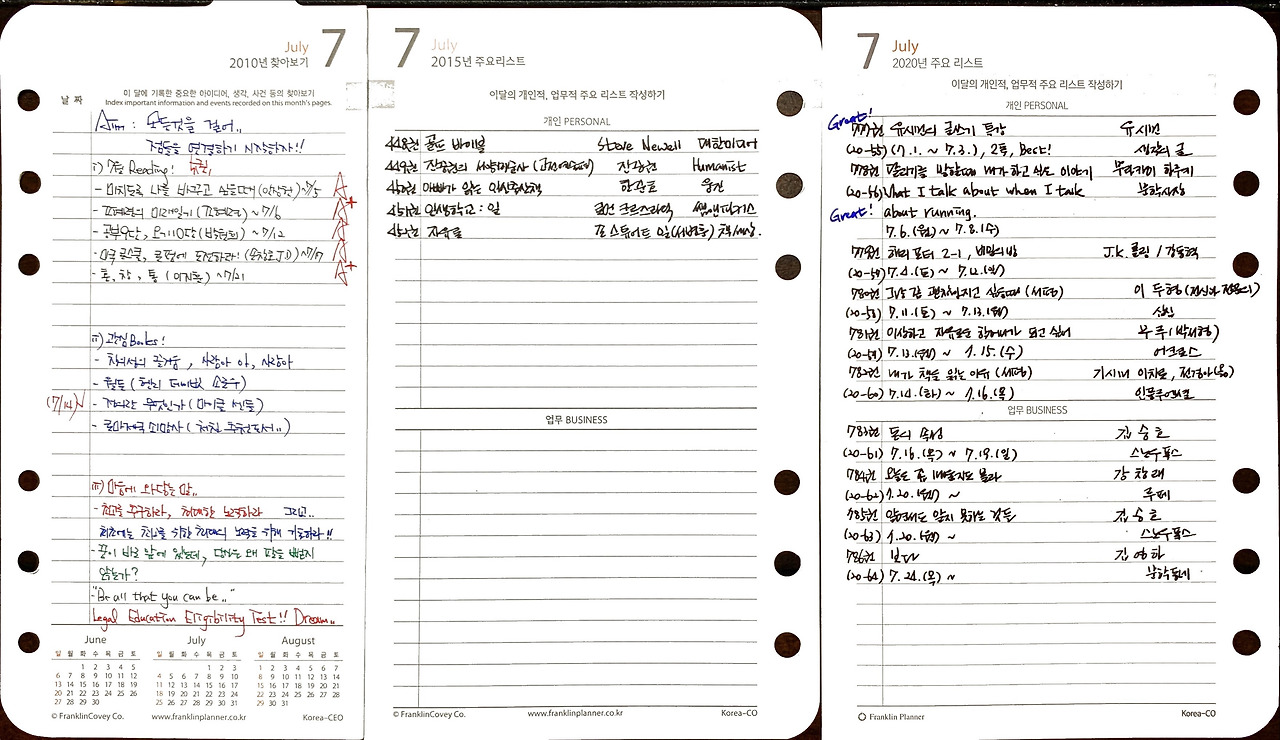 July 7
2010년 찾아보기
날 짜
이 달에 기록한 중요한 아이디어, 생각, 사건 등의 찾아보기
Index important information and events recorded on this month's pages.
Aim : 모든것을 걸어..
점들을 연결하기 시작하자!!
i) 7월 Reading!
- 마지못록 나를 바꾸고 싶을때 ~7/5 A
~7/6 A+
- 공부9단, 오기10단 (박원희) ~7/12 A
- 미국 로스쿨, 로펌에 도전하라! ~7/17 A
- 통, 창, 통 (이지훈) ~7/21 A+
ii) 관심 Books!
- 창의성의 즐거움, 사랑아 아, 사랑아
- 월든 (헨리 데이빗 소로우)
(7/14)√ - 정의란 무엇인가 (마이클 샌들)
- 로마제국 쇠망사
iii) 마음에 와닿는 말..
- 최고를 추구하라, 최대한 노력하라 그리고..
최초에는 최고를 위한 최대의 노력을 위해 기도하라!!
- 꿈이 바로 앞에 있는데, 당신은 왜 팔을 뻗지
않는가?
- "Be all that you can be.."
Legal Education Eligibility Test!! Dream..
June July August
일 월 화 수 목 금 토 일 월 화 수 목 금 토 일 월 화 수 목 금 토
1 2 3 4 5 1 2 3 1 2 3 4 5 6 7
6 7 8 9 10 11 12 4 5 6 7 8 9 10 8 9 10 11 12 13 14
13 14 15 16 17 18 19 11 12 13 14 15 16 17 15 16 17 18 19 20 21
20 21 22 23 24 25 26 18 19 20 21 22 23 24 22 23 24 25 26 27 28
27 28 29 30 25 26 27 28 29 30 31 29 30 31
© FranklinCovey Co. www.franklinplanner.co.kr Korea-CEO
7 July
2015년 주요리스트
이달의 개인적, 업무적 주요 리스트 작성하기
개인 PERSONAL
448권 골드 바이블 Steve Newell 대한미디어
449권 진중권의 서양미술사 (고전예술편) 진중권 Humanist
450권 아빠가 읽는 임신출산책 웅진
451권 인생학교 : 일 로먼 크르즈나릭 쌤앤파커스
452권 자유론 존 스튜어트 밀(서병훈) 책세상.
업무 BUSINESS
© FranklinCovey Co. www.franklinplanner.co.kr Korea-CO
7 July
2020년 주요 리스트
이달의 개인적, 업무적 주요 리스트 작성하기
개인 PERSONAL
Great!
777권 유시민의 글쓰기 특강 유시민
(20-55) (7.1. ~ 7.3.), 2독, Best! 생각의 길
778권 달리기를 말할때 내가 하고 싶은 이야기 무라카미 하루키
(20-56) What I talk about when I talk 문학사상
Great! about running.
7.6.(월) ~ 7.8.(수)
779권 해리포터 2-1, 비밀의방 J.K.롤링 / 강동혁
(20-57) 7.4.(토) ~ 7.12.(일)
780권 그냥 좀 괜찮아지고 싶을때 (서평) 이 두형 (정신과 전문의)
(20-58) 7.11.(토) ~ 7.13.(월) 심심
781권 이상하고 자유로운 할머니가 되고 싶어 무루 (박서영)
(20-59) 7.13.(월) ~ 7.15.(수) 어크로스
782권 내가 책을 읽는 이유 (서평) 기시미 이치로, 전경아(옮)
(20-60) 7.14.(화) ~ 7.16.(목) 인플루엔셜
업무 BUSINESS
783권 돈의 속성 김 승 호
(20-61) 7.16.(목) ~ 7.19.(일) 스노우폭스
784권 오늘은 좀 매울지도 몰라 강 창 래
(20-62) 7.20.(월) ~ 루페
785권 알면서도 알지 못하는 것들 김 승 호
(20-63) 7.20.(월) ~ 스노우폭스
786권 보다 김 영 하
(20-64) 7.24.(목) ~ 문학동네
Franklin Planner Korea-CO